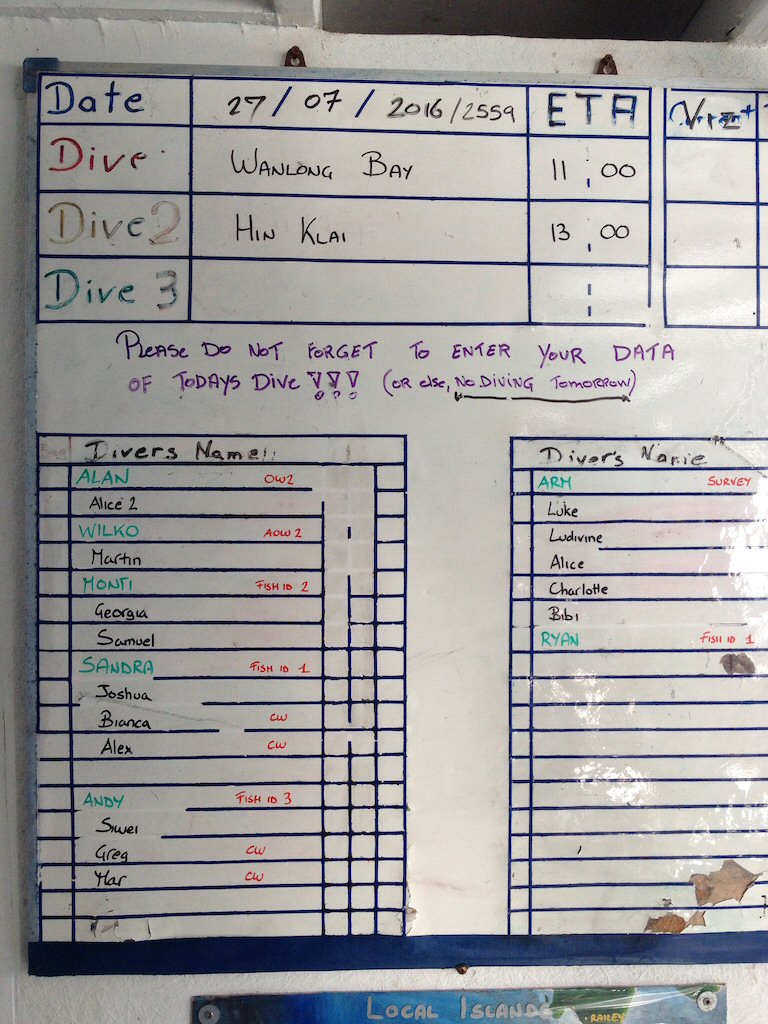 Date 27/07/2016/2559 ETA
Dive WANLONG BAY 11:00
Dive 2 HIN KLAI 13:00
Dive 3 :
PLEASE DO NOT FORGET TO ENTER YOUR DATA
OF TODAYS DIVE !!! (OR else, NO DIVING TOMORROW)
Divers Name
ALAN OW2
Alice 2
WILKO AOW 2
Martin
MONTI FISH ID 2
Georgia
Samuel
SANDRA FISH ID 1
Joshua
Bianca CW
Alex CW
ANDY FISH ID 3
Siwei
Greg CW
Mar CW
Diver's Name
ARM SURVEY
Luke
Ludivine
Alice
Charlotte
Bibi
RYAN FISH ID 1
LOCAL ISLANDS
RAILEY